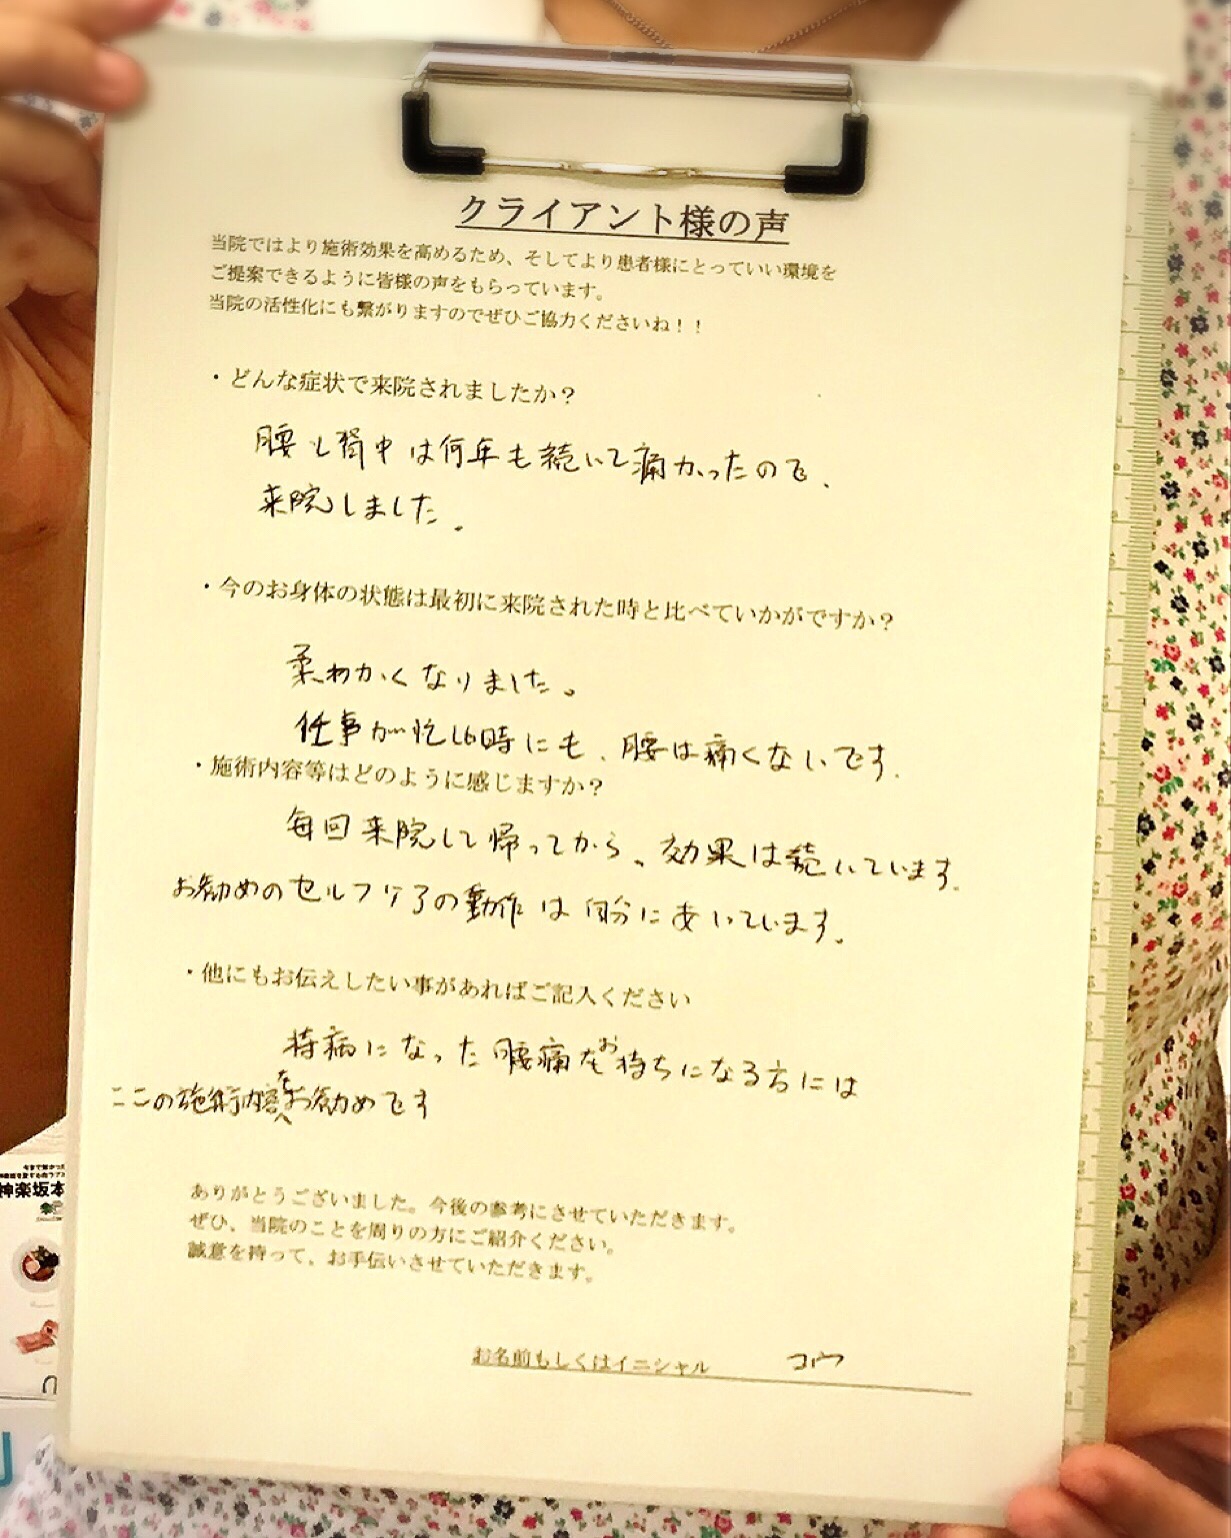 クライアント様の声
当院ではより施術効果を高めるため、そしてより患者様にとっていい環境を
ご提案できるように皆様の声をもらっています。
当院の活性化にも繋がりますのでぜひご協力くださいね！！
・どんな症状で来院されましたか？
腰と背中は何年も続いて痛かったので、
来院しました。
・今のお身体の状態は最初に来院された時と比べていかがですか？
柔わかくなりました。
仕事が忙しい時にも、腰は痛くないです。
・施術内容等はどのように感じますか？
毎回来院して帰ってから、効果は続いています。
お勧めのセルフケアの動作は自分にあいています。
・他にもお伝えしたい事があればご記入ください
持病になった腰痛をお持ちになる方には
ここの施術内容をお勧めです
ありがとうございました。今後の参考にさせていただきます。
ぜひ、当院のことを周りの方にご紹介ください。
誠意を持って、お手伝いさせていただきます。
お名前もしくはイニシャル コウ
神楽坂本